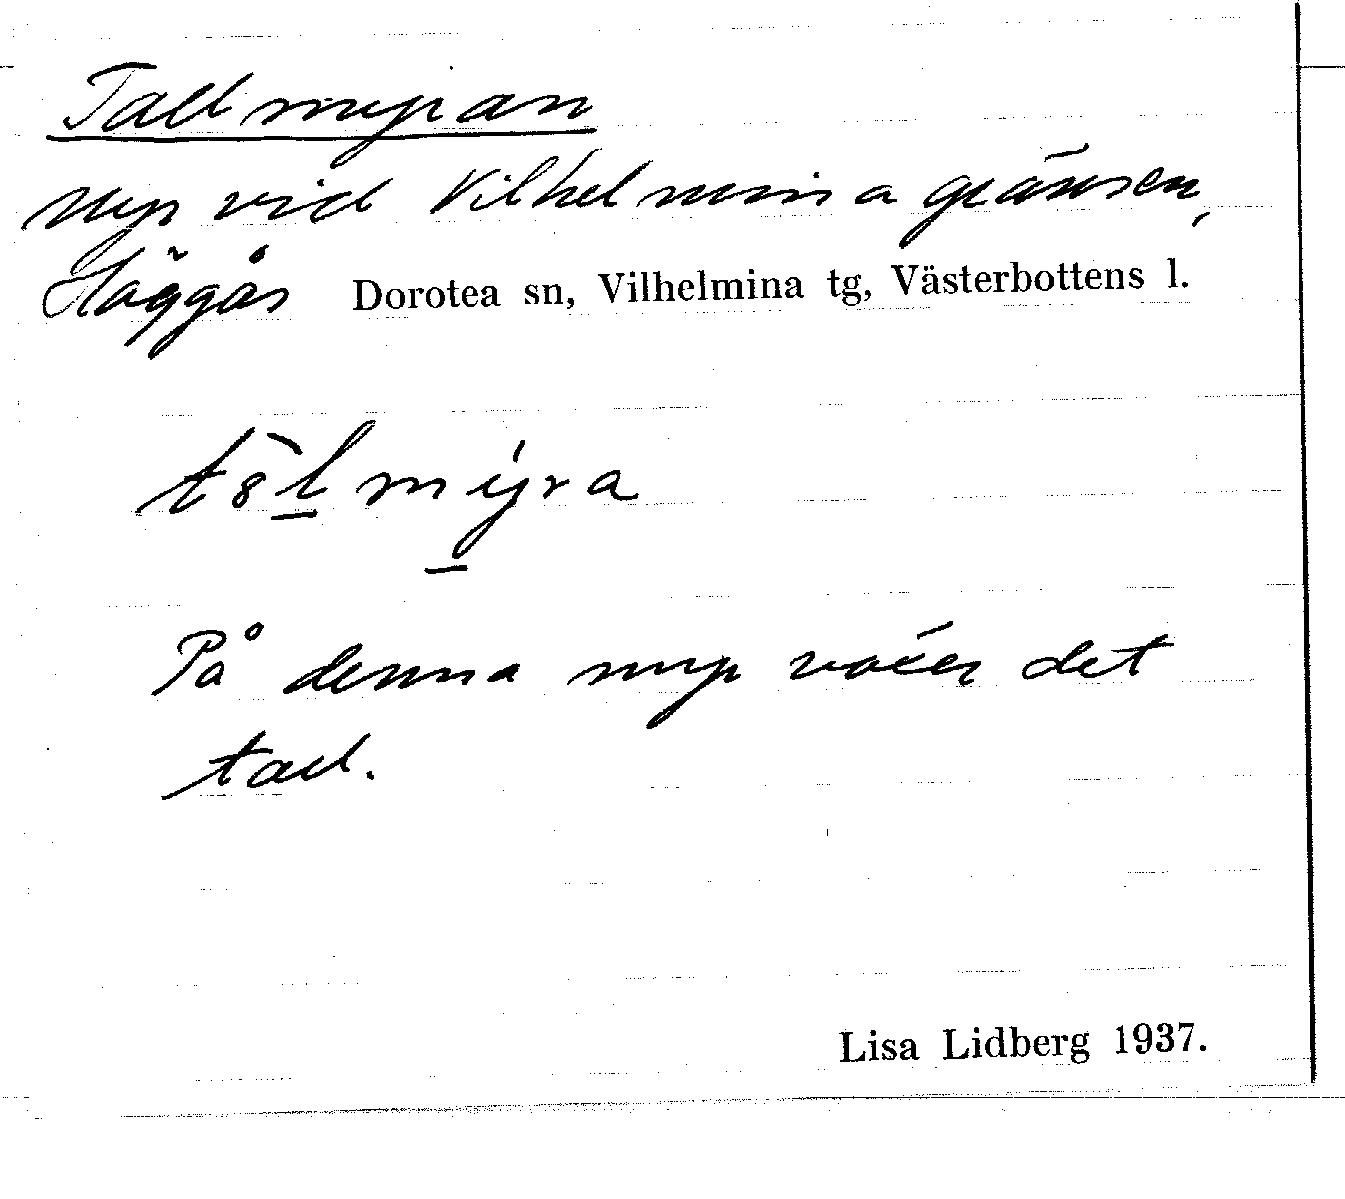 Tallmyran
Myr vid Vilhelminagränsen,
Häggås Dorotea sn, Vilhelmina tg, Västerbottens l.
På denna myr växer det
tall.
Lisa Lidberg 1937.